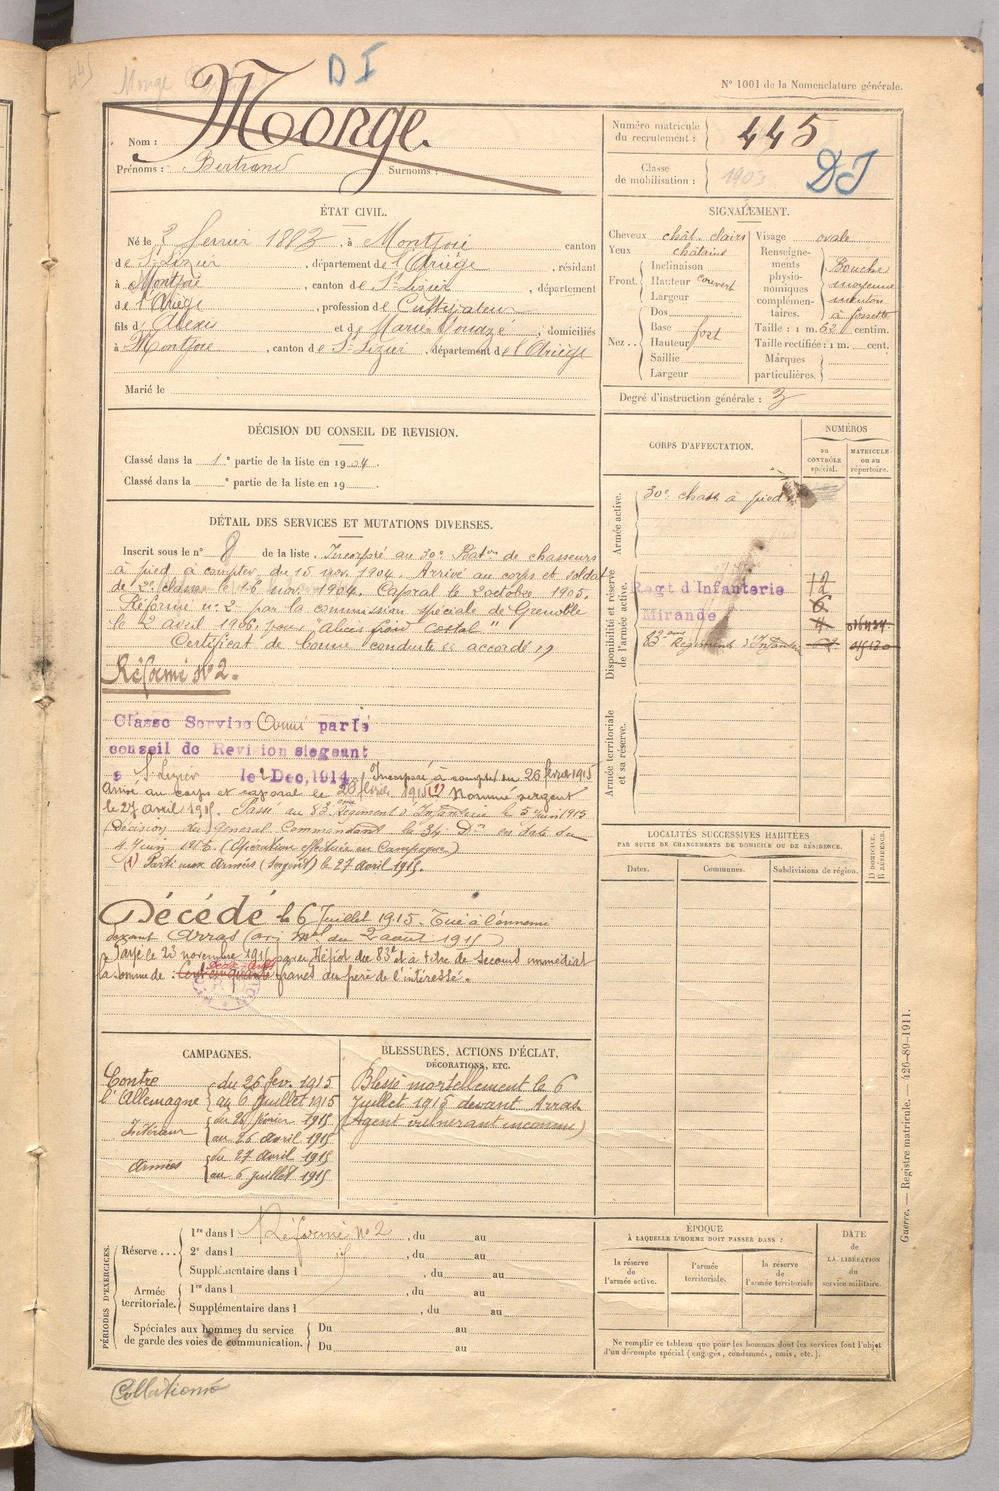 D I
N° 1001 de la Nomenclature générale.
Nom : Monge.
Prénoms : Bertrand Surnoms :
Numéro matricule du recrutement : 445
Classe de mobilisation : 1903
DI
ÉTAT CIVIL.
Né le 2 février 1883, à Montjoie canton
de St Lizier, département de l'Ariège, résidant
à Montjoie, canton de St Lizier, département
de l'Ariège, profession de Cultivateur
fils d'Alexis et de Marie Doudzé, domiciliés
à Montjoie, canton de St Lizier, département de l'Ariège
Marié le
SIGNALEMENT.
Cheveux chât. clairs
Yeux châtains
Front. Inclinaison
Hauteur couvert
Largeur
Nez.. Dos
Base
Hauteur fort
Saillie
Largeur
Visage ovale
Renseignements physionomiques complémentaires. Bouche moyenne menton à fossette
Taille : 1 m. 62 centim.
Taille rectifiée : 1 m. cent.
Marques particulières.
Degré d'instruction générale : 3
DÉCISION DU CONSEIL DE REVISION.
Classé dans la 1e partie de la liste en 1904.
Classé dans la e partie de la liste en 19
DÉTAIL DES SERVICES ET MUTATIONS DIVERSES.
Inscrit sous le n° 8 de la liste. Incorporé au 30e Baton de chasseurs
à pied à compter du 15 nov. 1904. Arrivé au corps et soldat
de 2e classe le 16 nov. 1904. Caporal le 2 octobre 1905.
Réformé n° 2 par la commission spéciale de Grenoble
le 2 avril 1906 pour "abcès froid costal"
Certificat de bonne conduite "accordé"
Réformé N° 2.
Classé Service Armé par le
conseil de Revision siegeant
à St Lizier le 2 Dec. 1914. Incorporé à compter du 26 février 1915
Arrivé au corps et caporal le 26 février 1915 (1) Nommé sergent
le 27 avril 1915. Passé au 83eme Régiment d'Infanterie le 5 juin 1915
(Décision du Général Commandant la 34e Don en date du
4 juin 1915 (Opération effectuée en Campagne)
(1) Parti aux Armées (Sergent) le 27 avril 1915.
Décédé le 6 Juillet 1915. Tué à l'ennemi
devant Arras (avis mel du 2 aout 1915)
Payé le 23 novembre 1915 par le Dépôt du 83e et à titre de secours immédiat
la somme de : Cent cinquante francs au père de l'intéressé.
CORPS D'AFFECTATION.
NUMÉROS
au CONTRÔLE spécial.
MATRICULE ou au répertoire.
Armée active.
30e chass. à pied
Disponibilité et réserve de l'armée active.
Regt d'Infanterie
Mirande
12
6
4
016434
83eme Régiment d'Infanterie
015130
Armée territoriale et sa réserve.
LOCALITÉS SUCCESSIVES HABITÉES
PAR SUITE DE CHANGEMENTS DE DOMICILE OU DE RÉSIDENCE.
Dates. Communes. Subdivisions de région.
D DOMICILE. R RÉSIDENCE.
CAMPAGNES.
Contre l'Allemagne
du 26 fevr. 1915
au 6 juillet 1915
Intérieur
du 26 février 1915
au 26 avril 1915
Armées
du 27 avril 1915
au 6 juillet 1915
BLESSURES, ACTIONS D'ÉCLAT,
DÉCORATIONS, ETC.
Blessé mortellement le 6
Juillet 1915 devant Arras
(Agent vulnérant inconnu)
PÉRIODES D'EXERCICES.
Réserve ...
1re dans l Réformé N° 2, du au
2e dans l, du au
Supplémentaire dans l, du au
Armée territoriale.
1re dans l, du au
Supplémentaire dans l, du au
Spéciales aux hommes du service de garde des voies de communication.
Du au
Du au
ÉPOQUE
À LAQUELLE L'HOMME DOIT PASSER DANS :
la réserve de l'armée active.
l'armée territoriale.
la réserve de l'armée territoriale
DATE de LA LIBÉRATION du service militaire.
Ne remplir ce tableau que pour les hommes dont les services font l'objet
d'un décompte spécial (engagés, condamnés, omis, etc.).
Guerre. — Registre matricule. — 426-89-1911.
Collationné